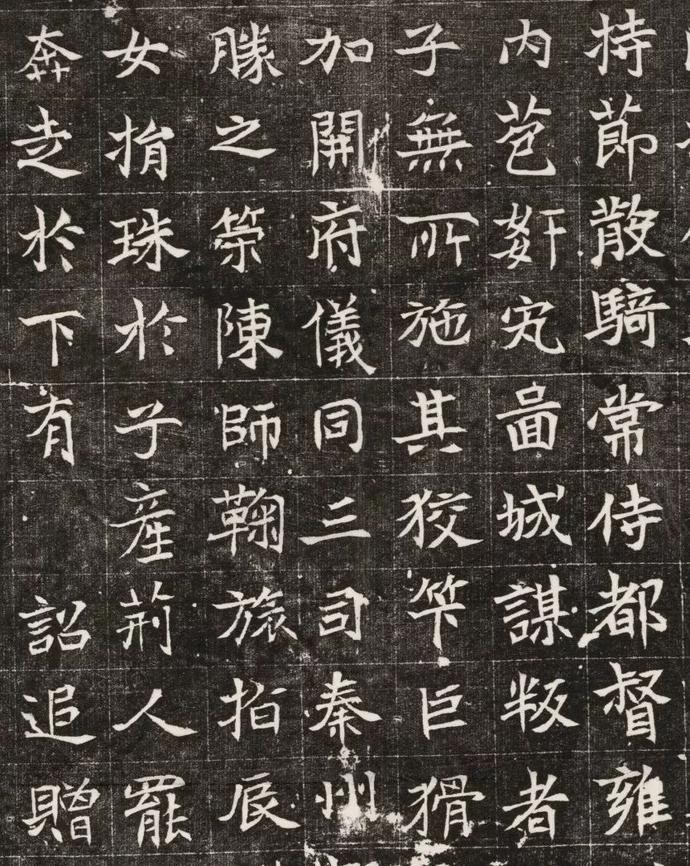 持節散騎常侍都督雍
内苞姧宄啚城謀叛者
子無所施其狡笇巨猾
加開府儀同三司秦州
勝之策陳師鞠旅指辰
女捐珠於子産荊人罷
奔走於下有 詔追贈